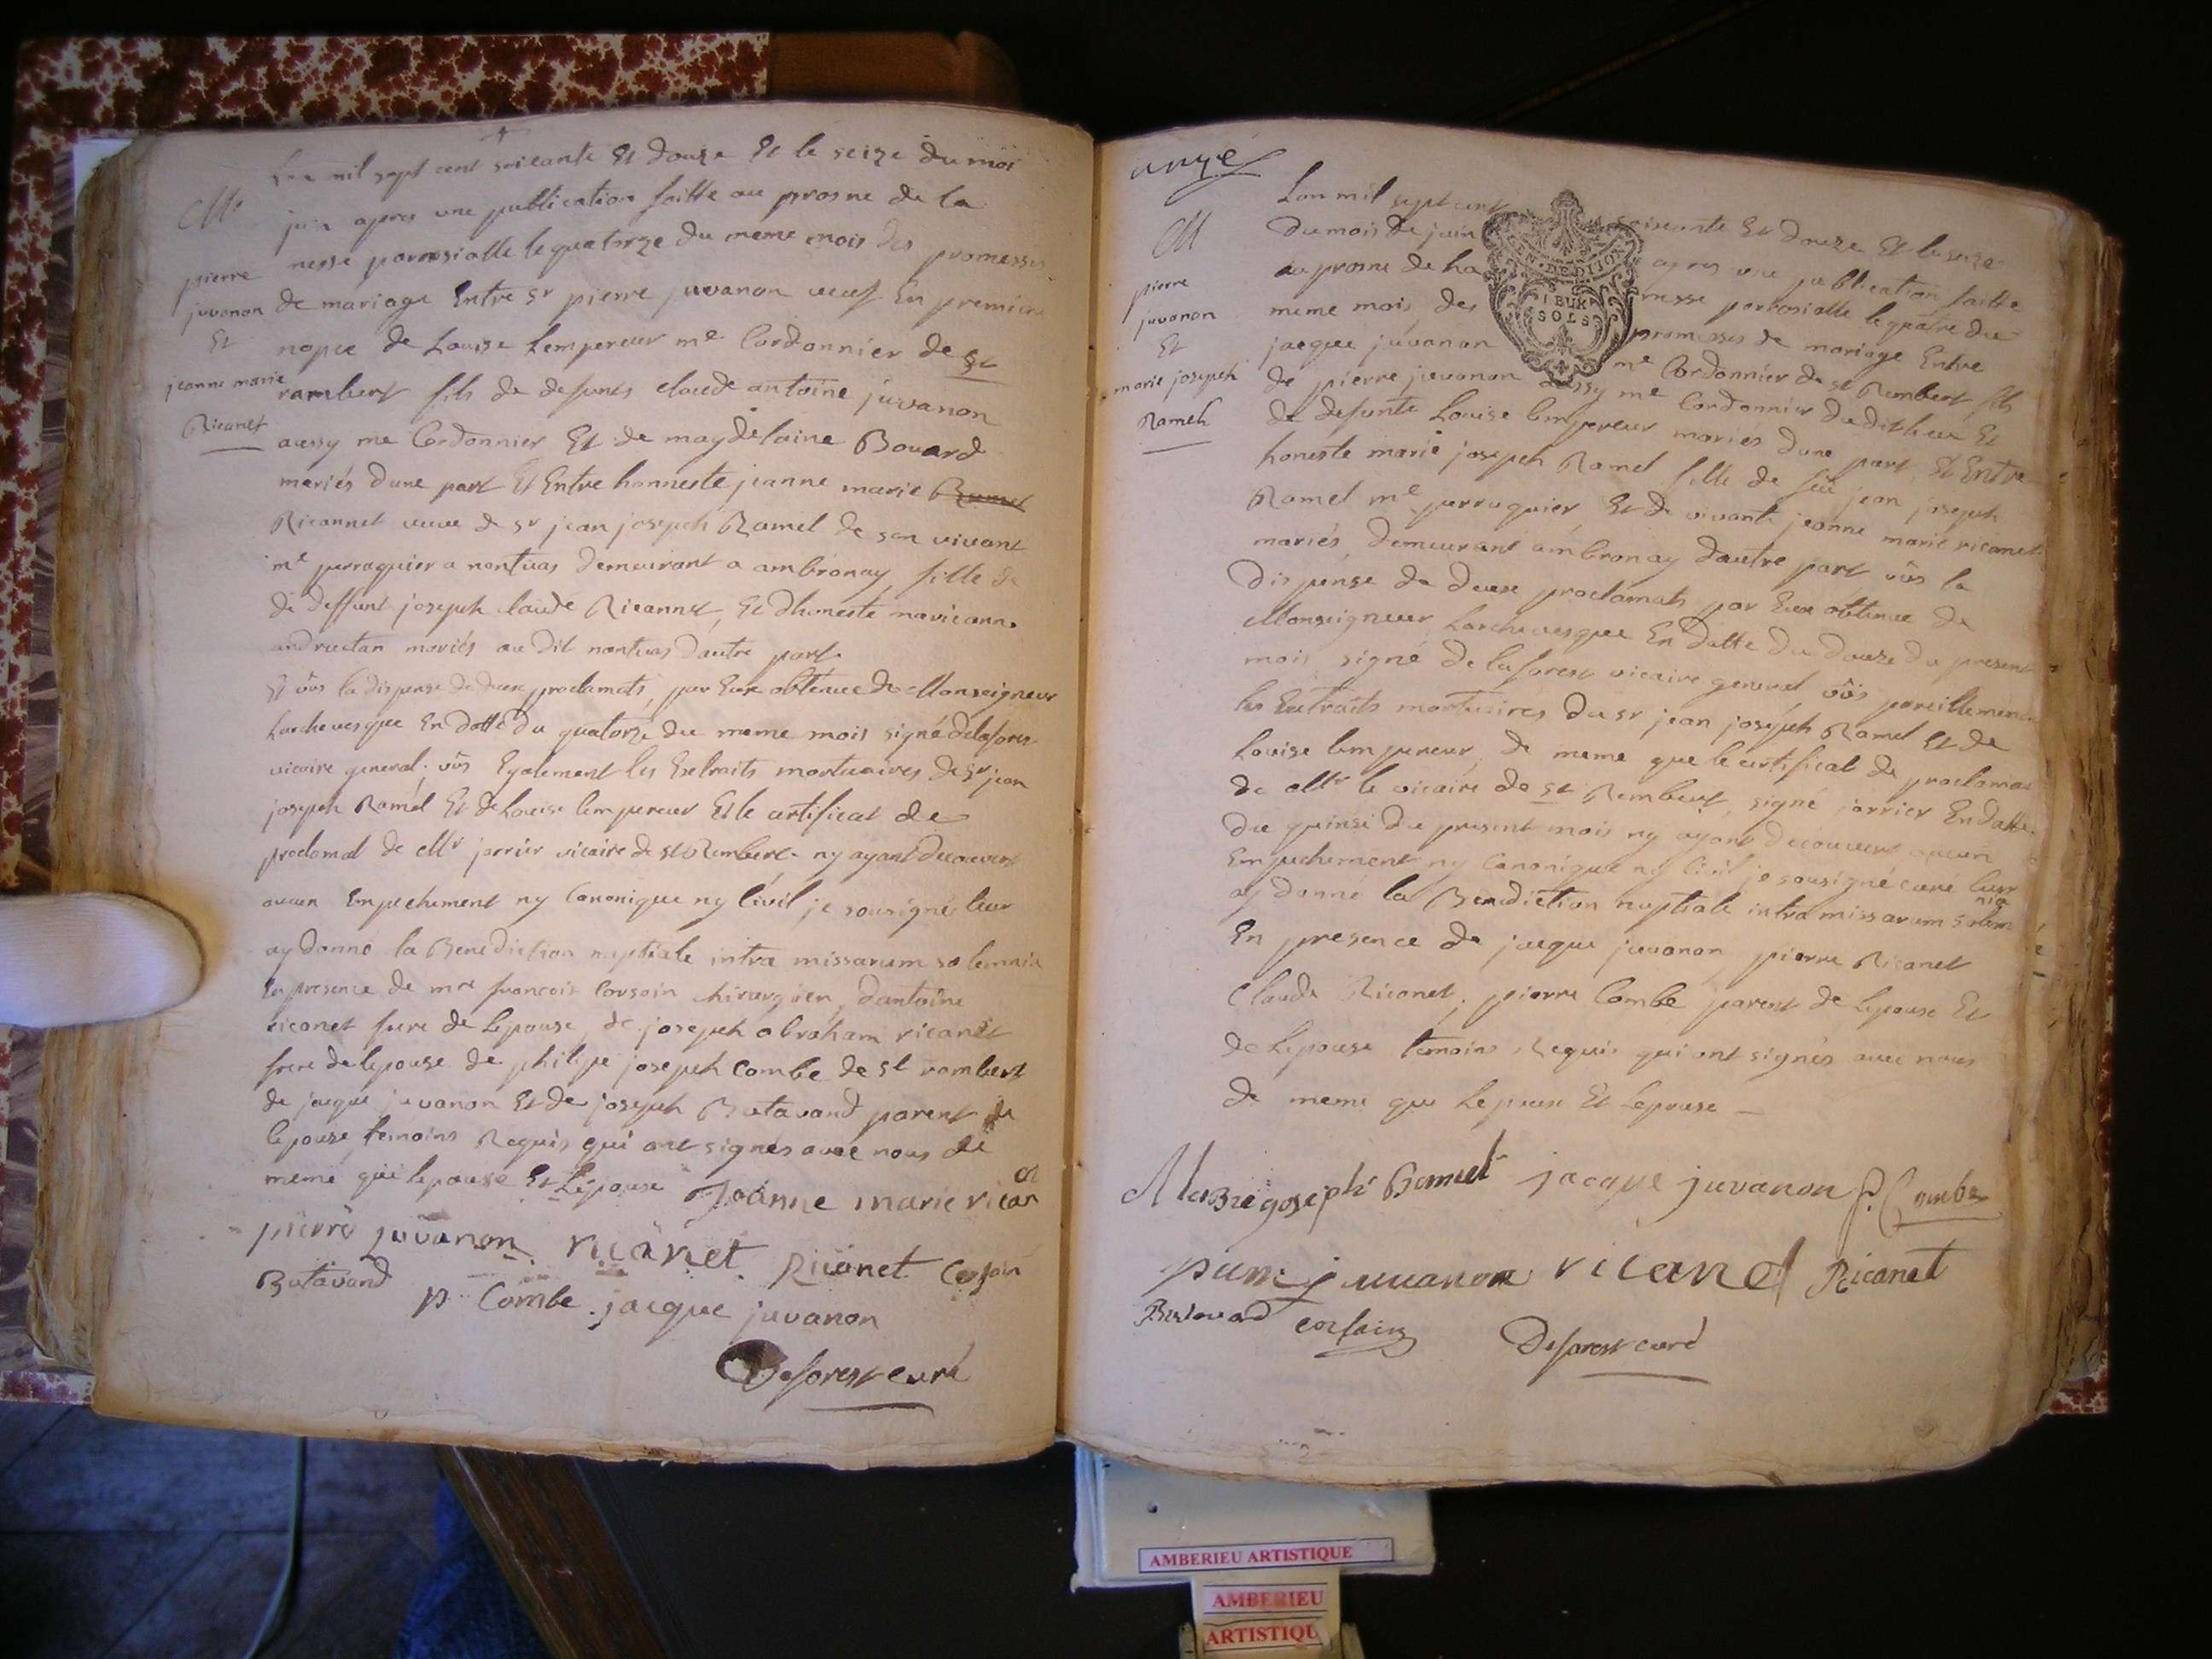 Lan mil sept cent soixante Et douze Et le seize du moi
juin apres une publication faitte au prosne de la
messe parrosialle le quatorze du meme mois des promesses
de mariage Entre sr pierre juvanon veuf En premiere
nopce de Louise Lempereur me Cordonnier de st
rambert fils de defunts claude antoine juvanon
aussy me Cordonnier Et de magdelaine Bouard
mariés dune part Et Entre honneste jeanne marie Ramel
Ricannet veuve de sr jean joseph Ramel de son vivant
me perraquier a nantuas demeurant a ambronay fille de
de deffunt joseph claude Ricannet, Et dhoneste marieanne
andructan mariés au dit nantuas dautre part.
Et vûs la dispense de deux proclamats, par Eux obtenue de Monseigneur
Larchevesque En datte du quatorze du meme mois signé delaforest
vicaire general. vûs Egalement les Extraits mortuaires de Sr jean
joseph Ramel Et de Louise Lempereur Et le certificat de
proclamat de Mr jarrier vicaire de St Rembert. ny ayant decouvert
aucun Empechement ny Canonique ny Civil je sousigné leur
ay donné la Benediction nuptiale intra missarum solemnia
En presence de mre francois Corsain chirurgien, dantoine
ricanet frere de Lepouse, de joseph abraham ricanet
frere de lepouse de philipe joseph Combe de St rambert
de jacque juvanon Et de joseph Butavand parent de
lepouse temoins Requis qui ont signés avec nous de
meme que lepouse Et Lepouse Joanne marie rican
pierre juvanon ricanet Ricanet Corsain
Butavand p. Combe jacque juvanon
Deforest curé
Mr
pierre
juvanon
Et
jeanne marie
Ricanet
onzé
M
pierre
juvanon
Et
marie joseph
Rameh
Lan mil sept cent soixante Et douze Et le seize
du mois de juin apres une publication faitte
au prosne de la messe parrosialle le quatre du
meme mois, des promesses de mariage Entre
jacque juvanon me Cordonnier de st Rembert fils
de pierre juvanon aussy me Cordonnier dudit lieu Et
de defunte Louise Lempereur mariés dune part Et Entre
honeste marie joseph Ramel fille de feu jean joseph
Ramel me perruquier Et de vivante jeanne marie ricanet
mariés, demeurant ambronay dautre part vûs la
dispense de deux proclamats par Eux obtenue de
Monseigneur Larchevesque En datte du douze du present
mois signé de laforest vicaire general vûs pareillement
les Extraits mortuaires du sr jean joseph Ramel Et de
Louise Lempereur, de meme que le certificat de proclamat
de Mr le vicaire de st Rembert signé jarrier En datte
du quinse du present mois ny ayant decouvert aucun
Empechement ny Canonique ny Civil je sousigné curé leur
ay donné la Benediction nuptiale intra missarum solemnia
En presence de jacque juvanon pierre Ricanet
Claude Ricanet, pierre Combe parent de Lepouse Et
de Lepouse temoins Requis qui ont signés avec nous
de meme que Lepoux Et Lepouse
Marie joseph Ramel jacque juvanon P. Combe
pierre juvanon ricanet Ricanet
Butavand corsain Deforest curé
N. DE DIJON
SOLS
AMBERIEU ARTISTIQUE
AMBERIEU
ARTISTIQU